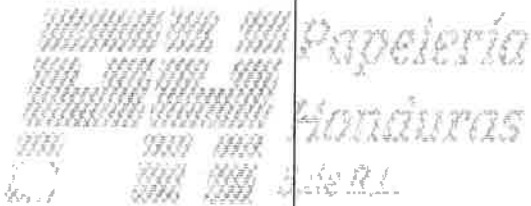 Papelería
Honduras
S. de R.L.